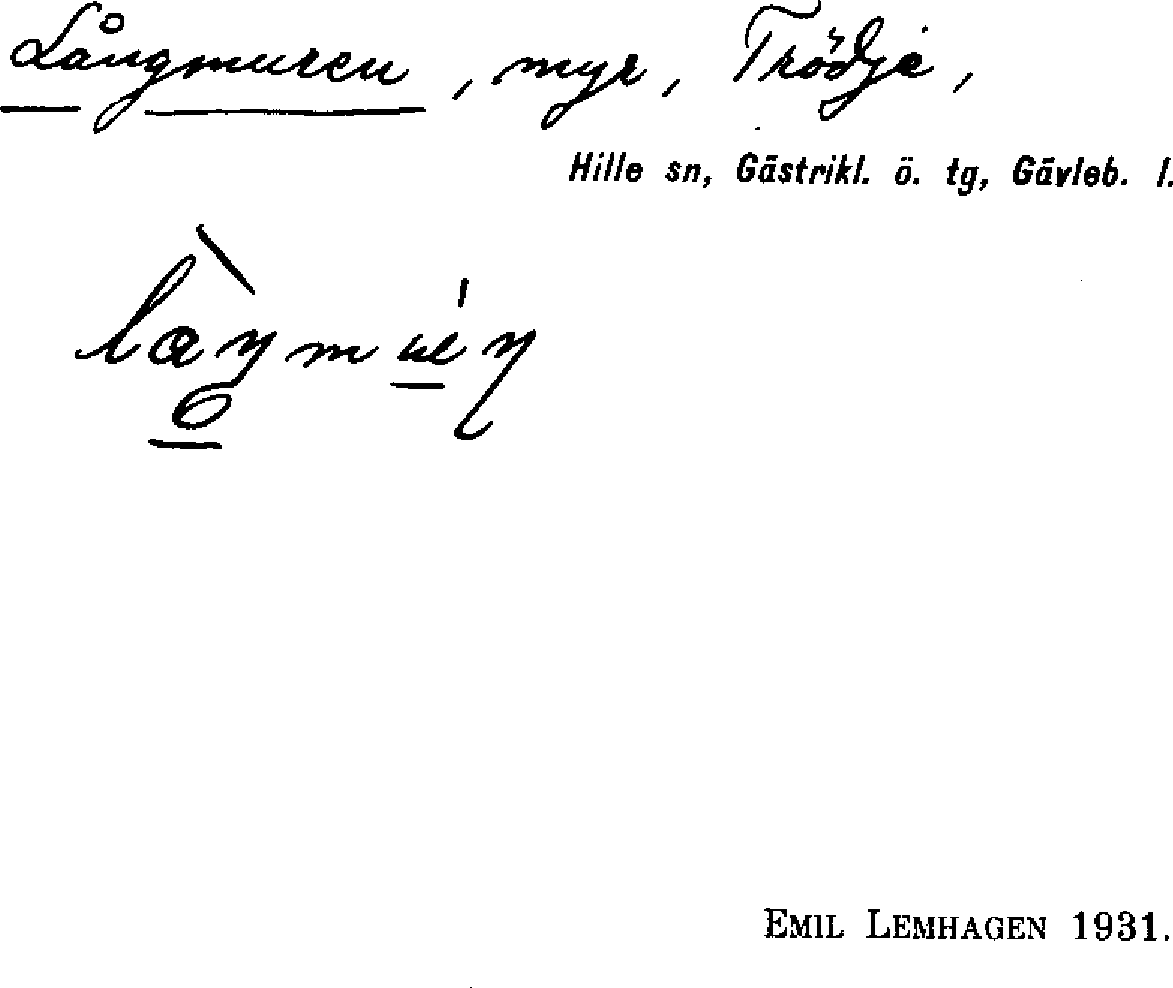 Långmuren, myr, Trödje,
Hille sn, Gästrikl. ö. tg, Gävleb. l.
EMIL LEMHAGEN 1931.